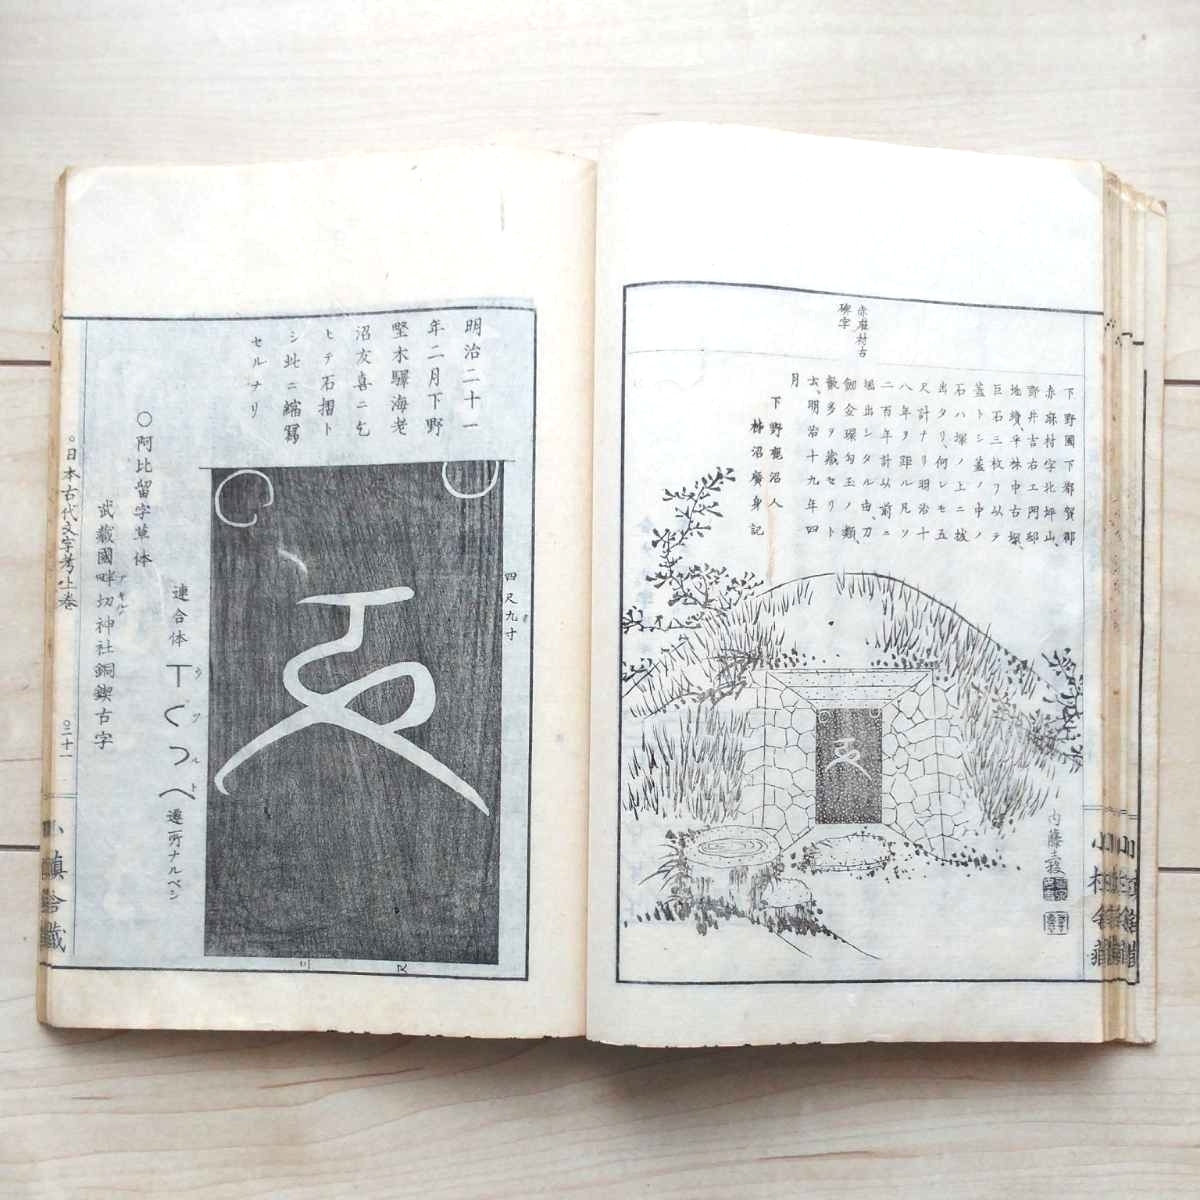 赤麻村古
碑字
下野國下都賀郡
赤麻村字北坪山、
野井古右エ門邸
地續、平林中古塚、
巨石三枚ヲ以テ
蓋トシ蓋ノ中ノ
石ハ塚ノ上ニ拔
出タリ、何レモ五
尺計ナリ明治十
八年ヲ距ル凡ソ
二百年計以前ニ
堀出シタル由、刀
劔金環勾玉ノ類、
數多ヲ藏セリト
云、明治十九年四
月
下野鹿沼人
柿沼廣身記
内藤
明治二十一
年二月下野
堅木驛海老
沼友喜ニ乞
ヒテ石摺ト
シ此ニ縮冩
セルナリ
四尺九寸
三 尺
連合体 丅く つ へ 遷所ナルベシ
ウ ツ ル ト
〇阿比留字草体
武藏國畔切神社銅鍥古字
アキル
〇日本古代文字考上卷
〇三十一